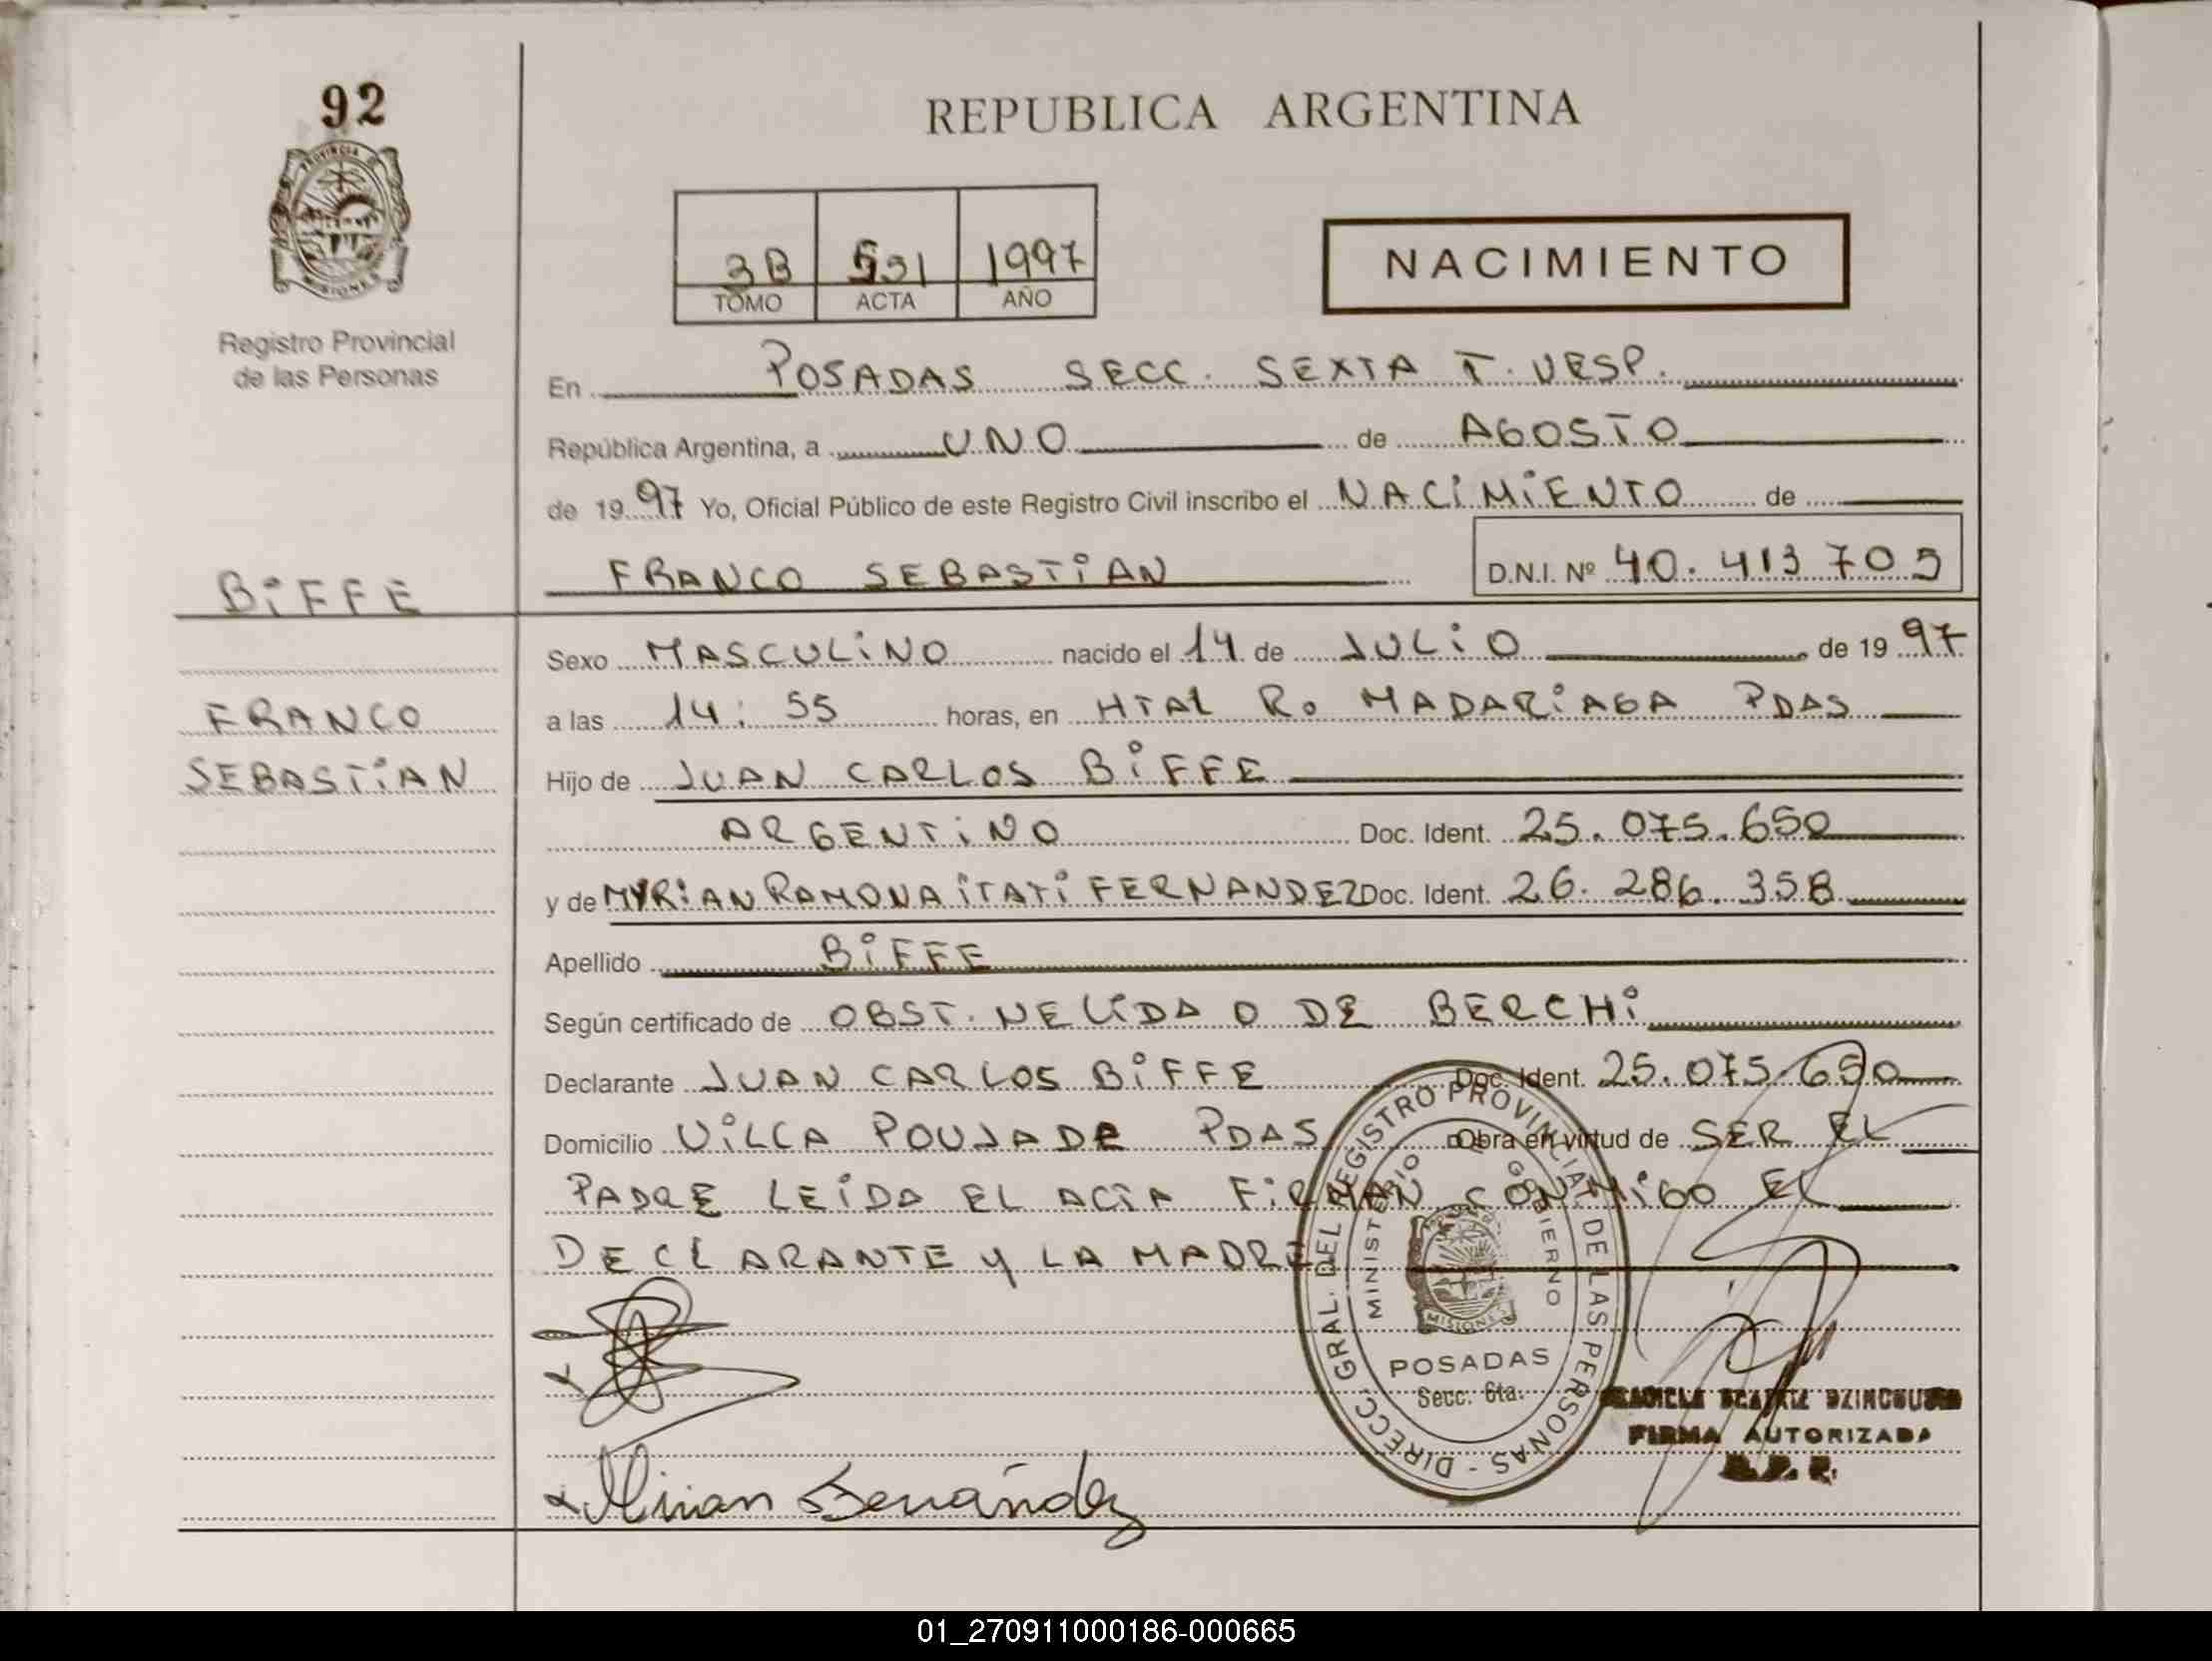 92
REPUBLICA ARGENTINA
PROVINCIA DE
MISIONES
Registro Provincial
de las Personas
3B 591 1997
TOMO ACTA AÑO
NACIMIENTO
En POSADAS SECC. SEXTA T. VESP.
República Argentina, a UNO de AGOSTO
de 1997 Yo, Oficial Público de este Registro Civil inscribo el NACIMIENTO de
FRANCO SEBASTIAN D.N.I. Nº 40.413.705
BIFFE
FRANCO
SEBASTIAN
Sexo MASCULINO nacido el 14 de JULIO de 1997
a las 14:55 horas, en HTAL R. MADARIAGA PDAS
Hijo de JUAN CARLOS BIFFE
ARGENTINO Doc. Ident. 25.075.650
y de MYRIAN RAMONA ITATI FERNANDEZ Doc. Ident. 26.286.358
Apellido BIFFE
Según certificado de OBST. NELIDA O DE BERCHI
Declarante JUAN CARLOS BIFFE Doc. Ident. 25.075.650
Domicilio VILLA POUJADE PDAS Obra en virtud de SER EL
PADRE LEIDA EL ACTA FIRMAN CONMIGO EL
DECLARANTE Y LA MADRE
DIRECC. GRAL. DEL REGISTRO PROVINCIAL DE LAS PERSONAS
MINISTERIO GOBIERNO
MISIONES
POSADAS
Secc. 6ta.
FIRMA AUTORIZADA
Mirian Fernández
01_270911000186-000665